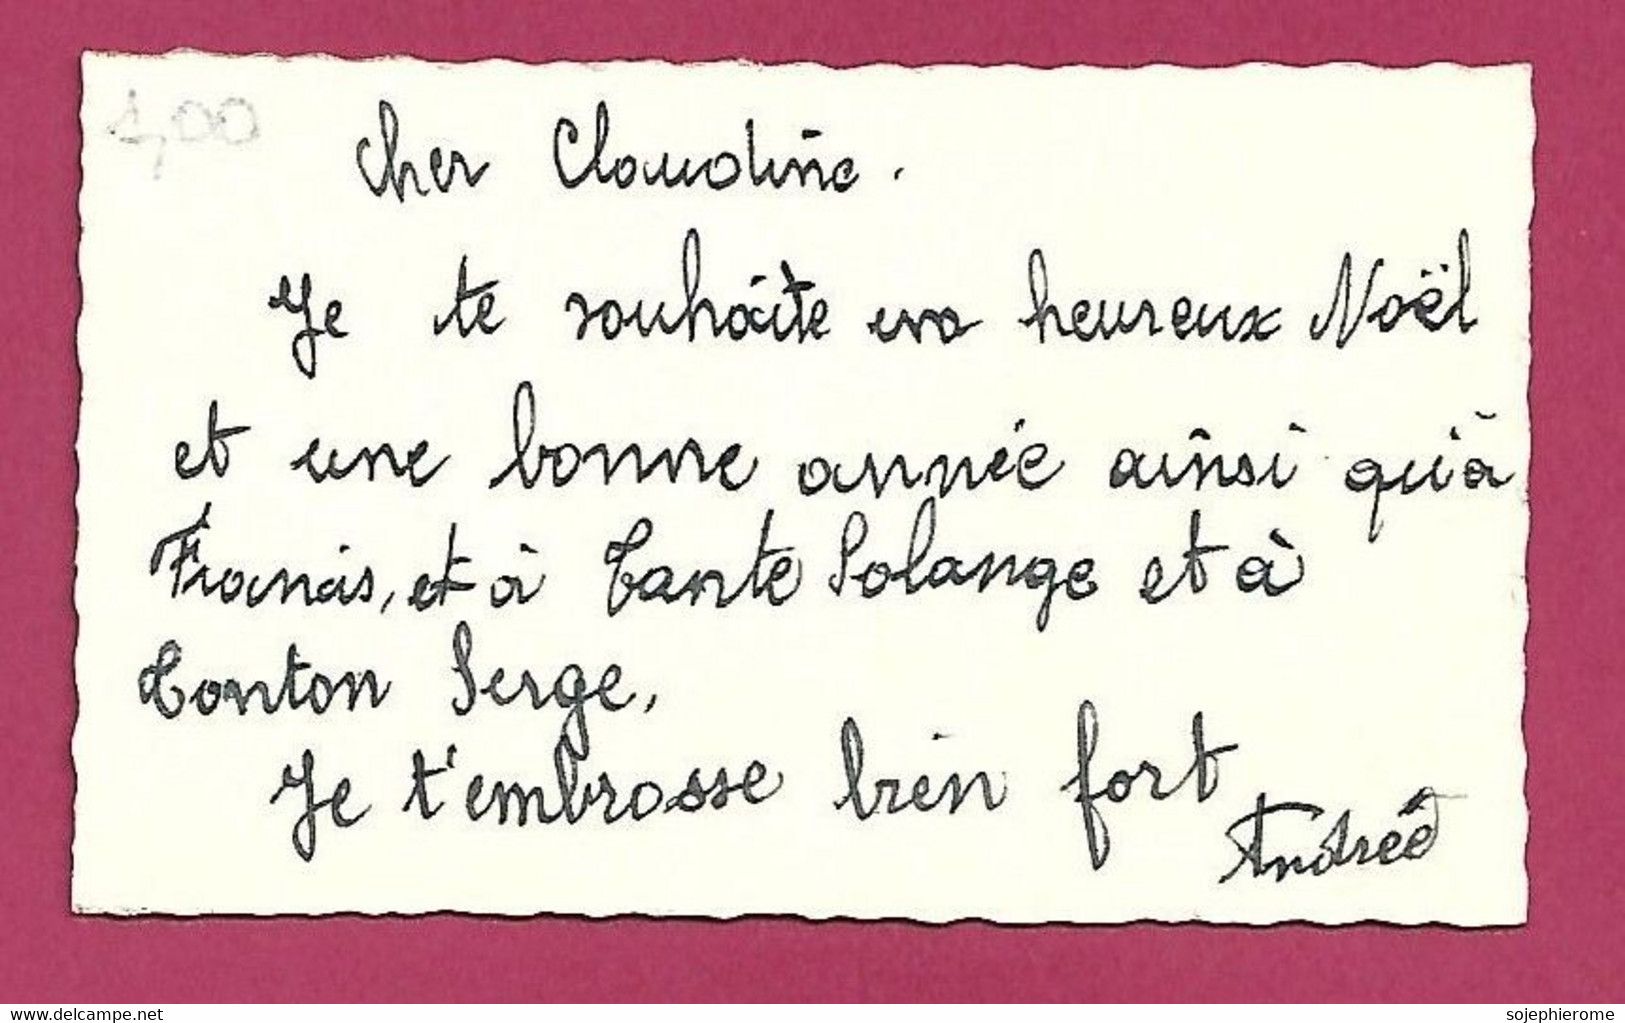 1,00
Cher Claudine.
Je te souhaite un heureux Noël
et une bonne année ainsi qu'à
Francis, et à Tante Solange et à
Tonton Serge,
Je t'embrasse bien fort
Andrée
www.delcampe.net
sojephierome